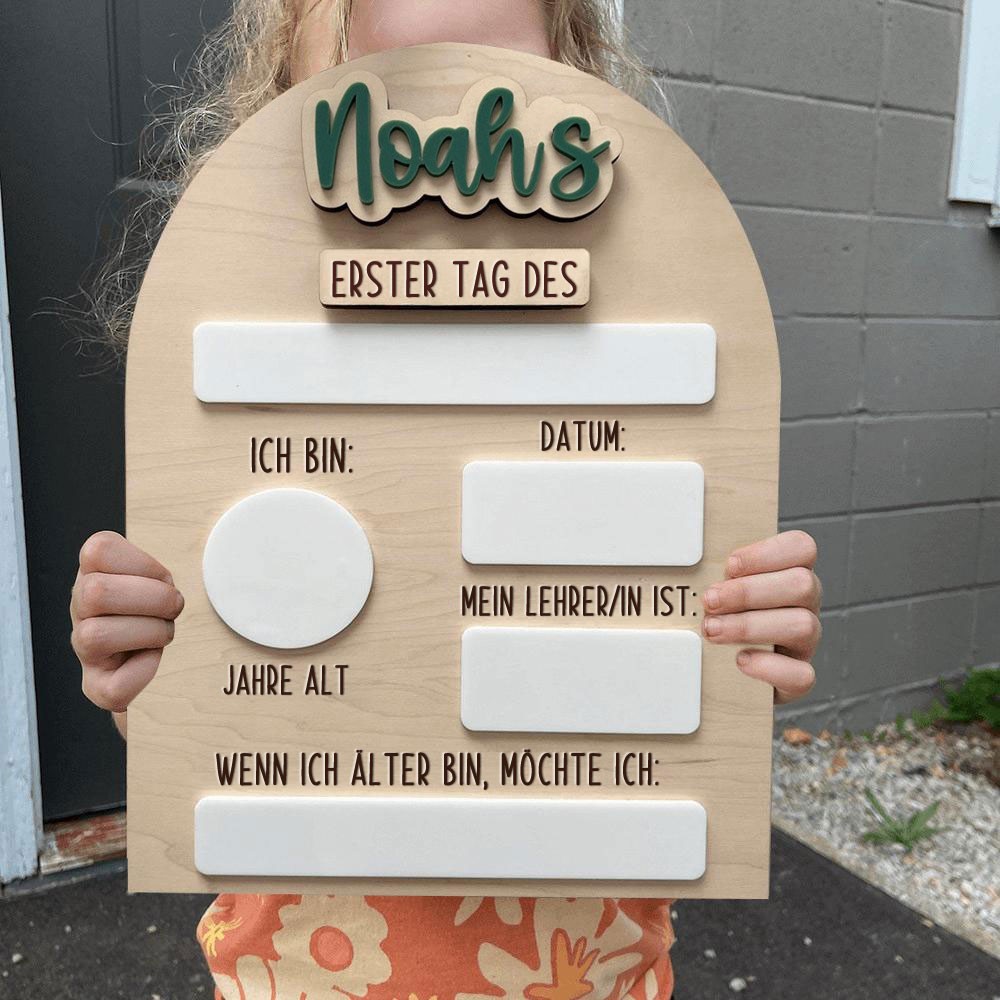 Noahs
ERSTER TAG DES
ICH BIN:
DATUM:
MEIN LEHRER/IN IST:
JAHRE ALT
WENN ICH ÄLTER BIN, MÖCHTE ICH: